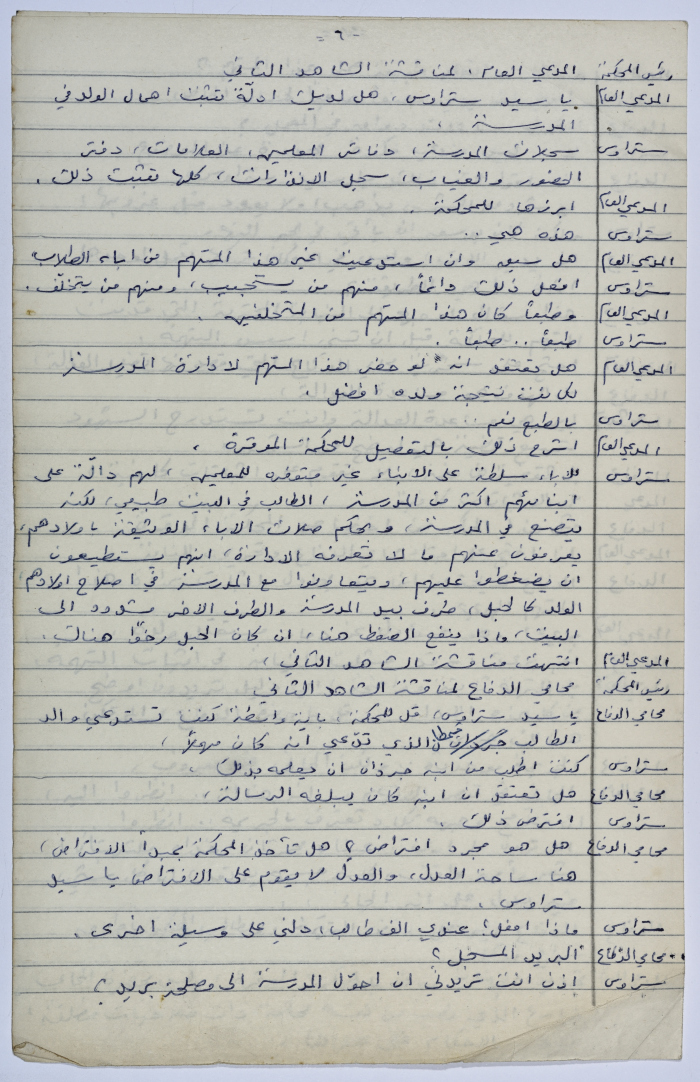 - ٦ -
رئيس المحكمة المدعي العام، لمناقشة الشاهد الثاني
المدعي العام يا سيد ستراوس، هل لديك ادلّة تثبت اهمال الولد في
المدرسة.
ستراوس سجلات المدرسة، دفاتر المعلمين، العلامات، دفتر
الحضور والغياب، سجل الانذارات، كلها تثبت ذلك.
المدعي العام ابرزها للمحكمة.
ستراوس هذه هي..
المدعي العام هل سبق وان استدعيت غير هذا المتهم من اباء الطلاب
ستراوس افعل ذلك دائماً، منهم من يستجيب، ومنهم من يتخلّف.
المدعي العام وطبعاً كان هذا المتهم من المتخلفين.
ستراوس طبعاً.. طبعاً.
المدعي العام هل تعتقد انه لو حضر هذا المتهم لادارة المدرسة
لكانت نتيجة ولده افضل.
ستراوس بالطبع نعم..
المدعي العام اشرح ذلك بالتفصيل للمحكمة الموقرة.
ستراوس للاباء سلطة على الابناء غير متوفره للمعلمين، لهم دالّة على
ابنائهم اكثر من المدرسة، الطالب في البيت طبيعي، لكنه
يتصنع في المدرسة، وبحكم صلات الاباء الوثيقة باولادهم،
يعرفون عنهم ما لا تعرفه الادارة، انهم يستطيعون
ان يضغطوا عليهم، ويتعاونوا مع المدرسة في اصلاح اولادهم،
الولد كالحبل، طرف بيد المدرسة والطرف الاخر مشدود الى
البيت، وماذا ينفع الضغط هنا، ان كان الحبل رخوًا هناك.
المدعي العام انتهت مناقشة الشاهد الثاني.
رئيس المحكمة محامي الدفاع لمناقشة الشاهد الثاني
محامي الدفاع يا سيد ستراوس، قل للمحكمة، باية واسطة كنت تستدعي والد
الطالب الذي تدّعي انه كان مهملاً،
ستراوس كنت اطلب من ابنه جبران ان يعلمه بذلك.
محامي الدفاع هل تعتقد ان ابنه كان يبلغه الرسالة.
ستراوس افترض ذلك.
محامي الدفاع هل هو مجرد افتراض؟ هل تأخذ المحكمة بمبدأ الافتراض،
هنا ساحة العدل، والعدل لا يقوم على الافتراض يا سيد
ستراوس.
ستراوس ماذا افعل؟ عندي الف طالب، دلني على وسيلة اخرى.
محامي الدفاع البريد المسجل؟
ستراوس إذن انت تريدني ان احوّل المدرسة الى مصلحة بريد؟